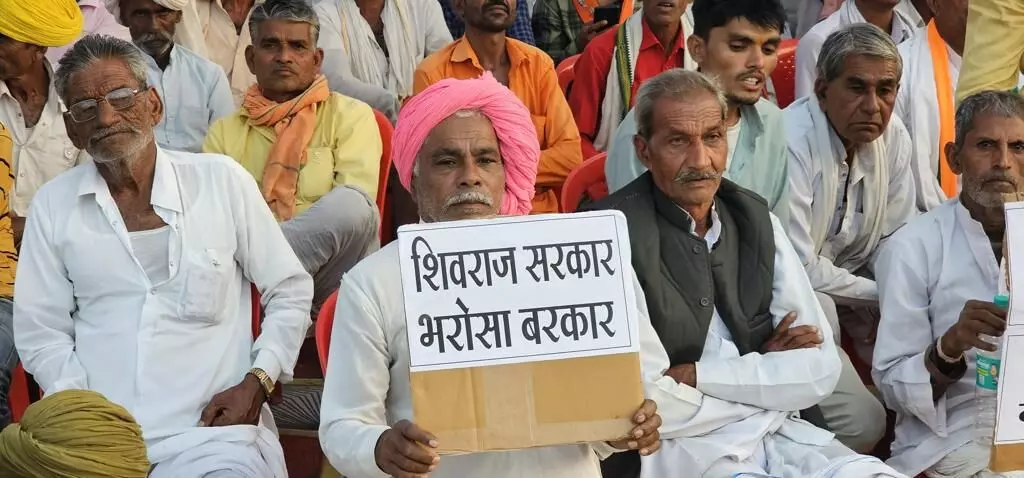 शिवराज सरकार
भरोसा बरकार